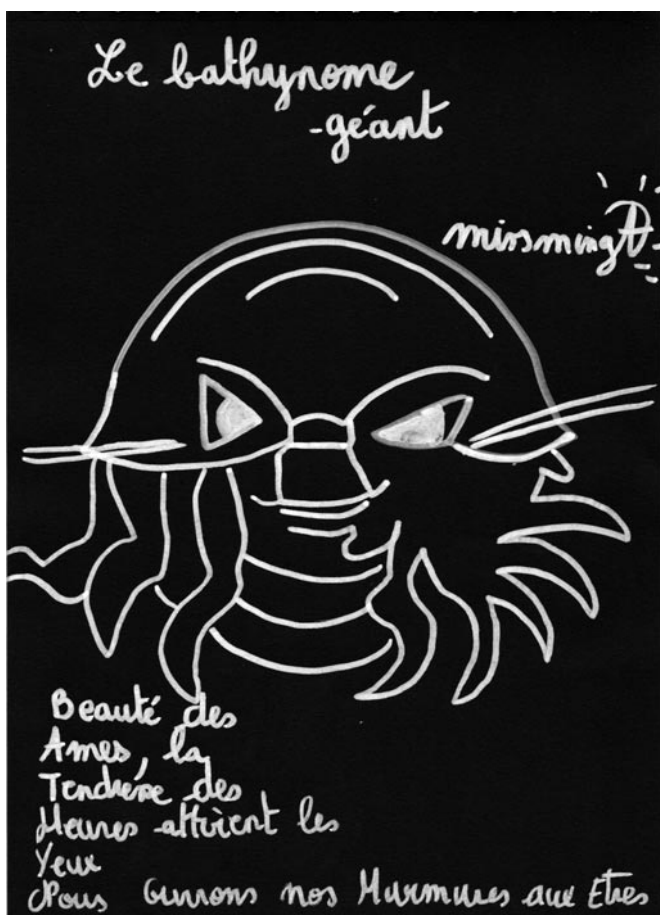 Le bathynome
-géant
missming
Beauté des
Ames, la
Tendresse des
Heures attirent les
Yeux
Nous Ouvrons nos Murmures aux Etres